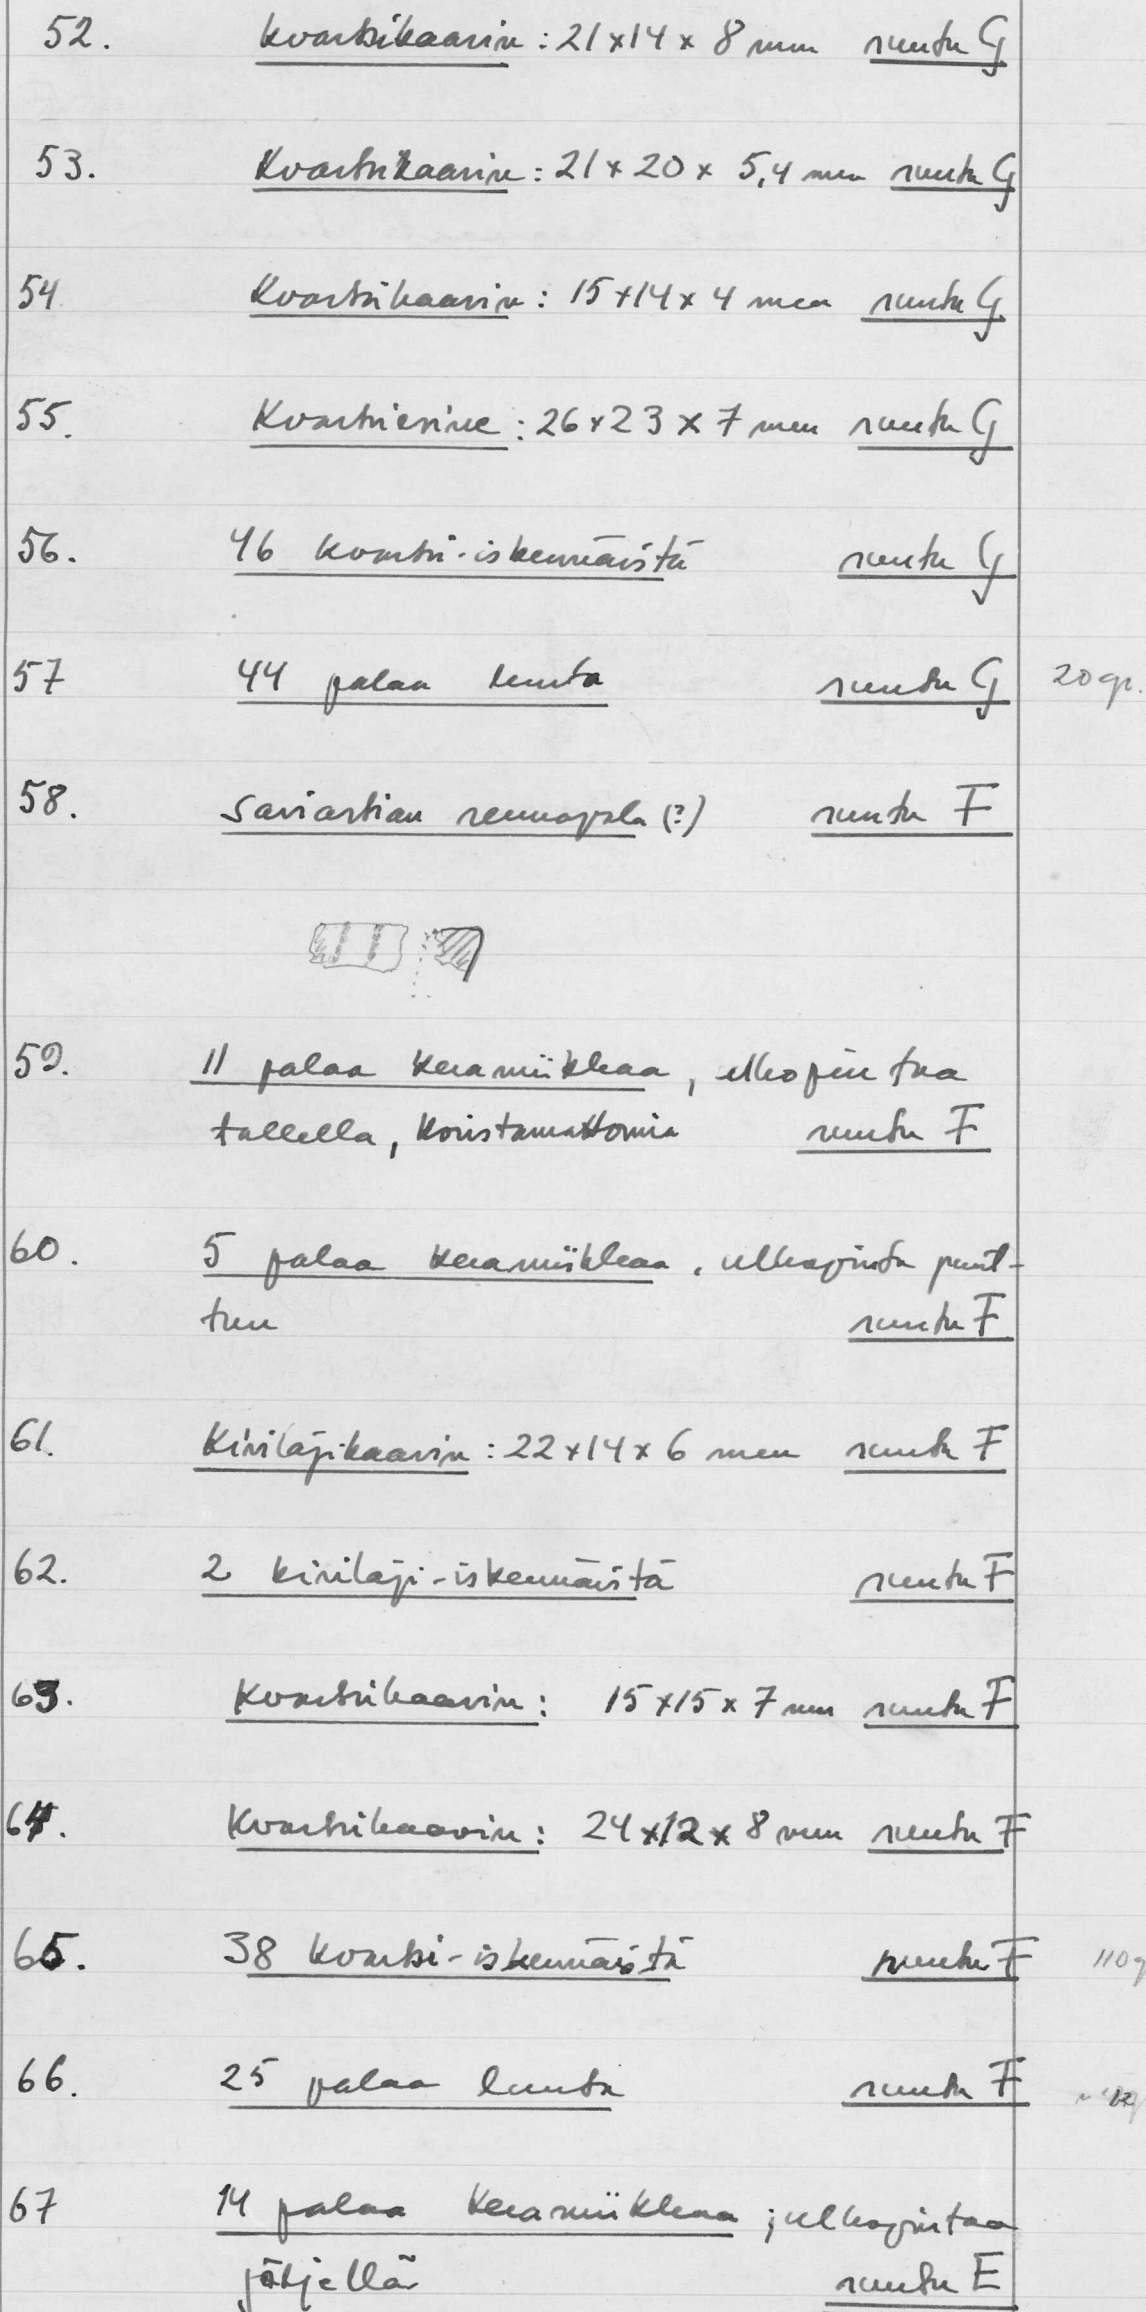 52. Kvartsikaavin : 21 x 14 x 8 mm ruutu G
53. Kvartsikaavin : 21 x 20 x 5,4 mm ruutu G
54 Kvartsikaavin : 15 x 14 x 4 mm ruutu G
55. Kvartsiesine : 26 x 23 x 7 mm ruutu G
56. 46 kvartsi-iskennäistä ruutu G
57 44 palaa luuta ruutu G 20 gr.
58. Saviastian reunapala (?) ruutu F
59. 11 palaa keramiikkaa, ulkopintaa
tallella, koristamattomia ruutu F
60. 5 palaa keramiikkaa, ulkopinta puut-
tuu ruutu F
61. Kivilajikaavin : 22 x 14 x 6 mm ruutu F
62. 2 kivilaji-iskennäistä ruutu F
63. Kvartsikaavin : 15 x 15 x 7 mm ruutu F
64. Kvartsikaavin : 24 x 12 x 8 mm ruutu F
65. 38 kvartsi-iskennäistä ruutu F 110 g
66. 25 palaa luuta ruutu F
67 14 palaa keramiikkaa ; ulkopintaa
jäljellä ruutu E